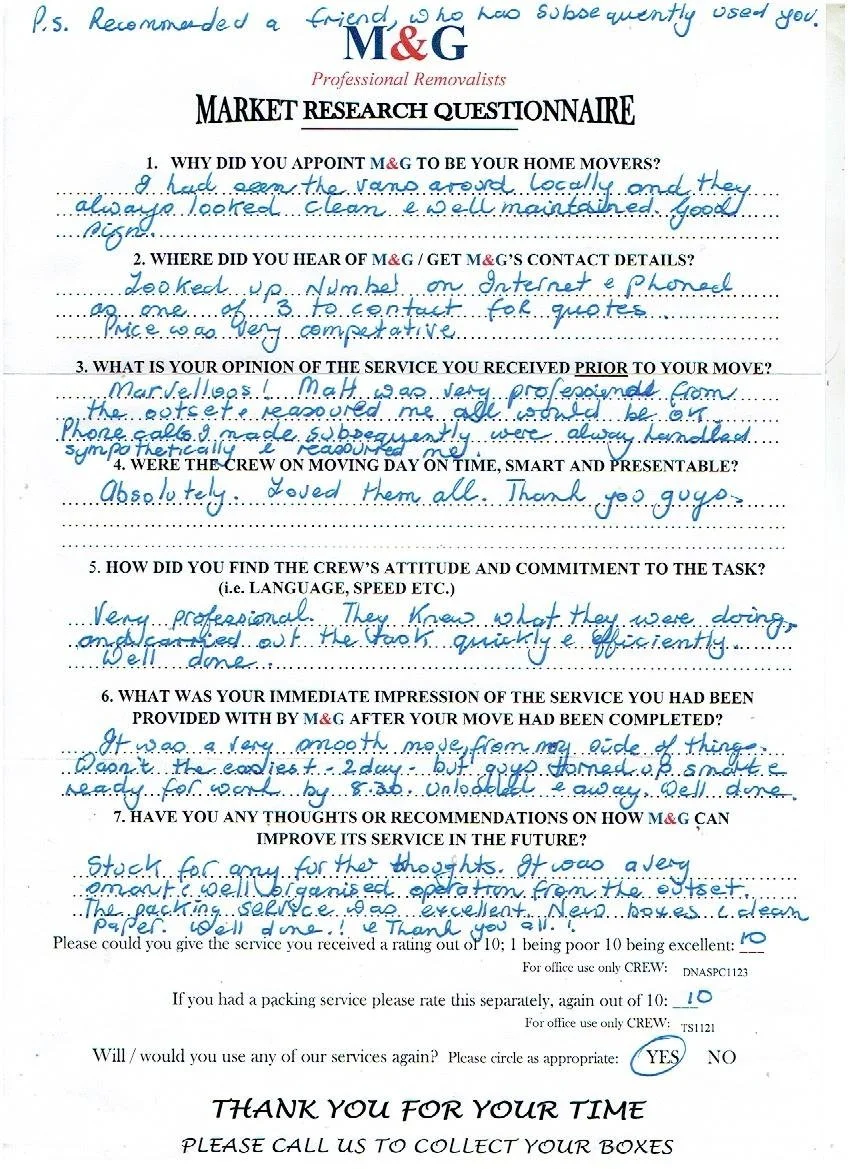 P.S. Recommended a friend, who has subsequently used you.
M&G
Professional Removalists
MARKET RESEARCH QUESTIONNAIRE
1. WHY DID YOU APPOINT M&G TO BE YOUR HOME MOVERS?
I had seen the vans around locally and they
always looked clean & well maintained. Good
sign.
2. WHERE DID YOU HEAR OF M&G / GET M&G'S CONTACT DETAILS?
Looked up Number on Internet & Phoned
as one of 3 to contact for quotes.
Price was very compatative
3. WHAT IS YOUR OPINION OF THE SERVICE YOU RECEIVED PRIOR TO YOUR MOVE?
Marvellous! Matt was very professional from
the outset & reassured me all would be OK.
Phone calls I made subsequently were alway handled
sympathetically & reassured me.
4. WERE THE CREW ON MOVING DAY ON TIME, SMART AND PRESENTABLE?
Absolutely. Loved them all. Thank you guys.
5. HOW DID YOU FIND THE CREW'S ATTITUDE AND COMMITMENT TO THE TASK?
(i.e. LANGUAGE, SPEED ETC.)
Very professional. They knew what they were doing,
and carried out the task quickly & efficiently.
Well done.
6. WHAT WAS YOUR IMMEDIATE IMPRESSION OF THE SERVICE YOU HAD BEEN
PROVIDED WITH BY M&G AFTER YOUR MOVE HAD BEEN COMPLETED?
It was a very smooth move, from my side of things.
Wasn't the easiest - 2 day - but guys turned up smart &
ready for work by 8.30. Unloaded & away. Well done.
7. HAVE YOU ANY THOUGHTS OR RECOMMENDATIONS ON HOW M&G CAN
IMPROVE ITS SERVICE IN THE FUTURE?
Stuck for any further thoughts. It was a very
smart & well organised operation from the outset.
The packing service was excellent. New boxes & clean
paper. Well done! & Thank you all!
Please could you give the service you received a rating out of 10; 1 being poor 10 being excellent: 10
For office use only CREW: DNASPC1123
If you had a packing service please rate this separately, again out of 10: 10
For office use only CREW: TS1121
Will / would you use any of our services again? Please circle as appropriate: YES NO
THANK YOU FOR YOUR TIME
PLEASE CALL US TO COLLECT YOUR BOXES